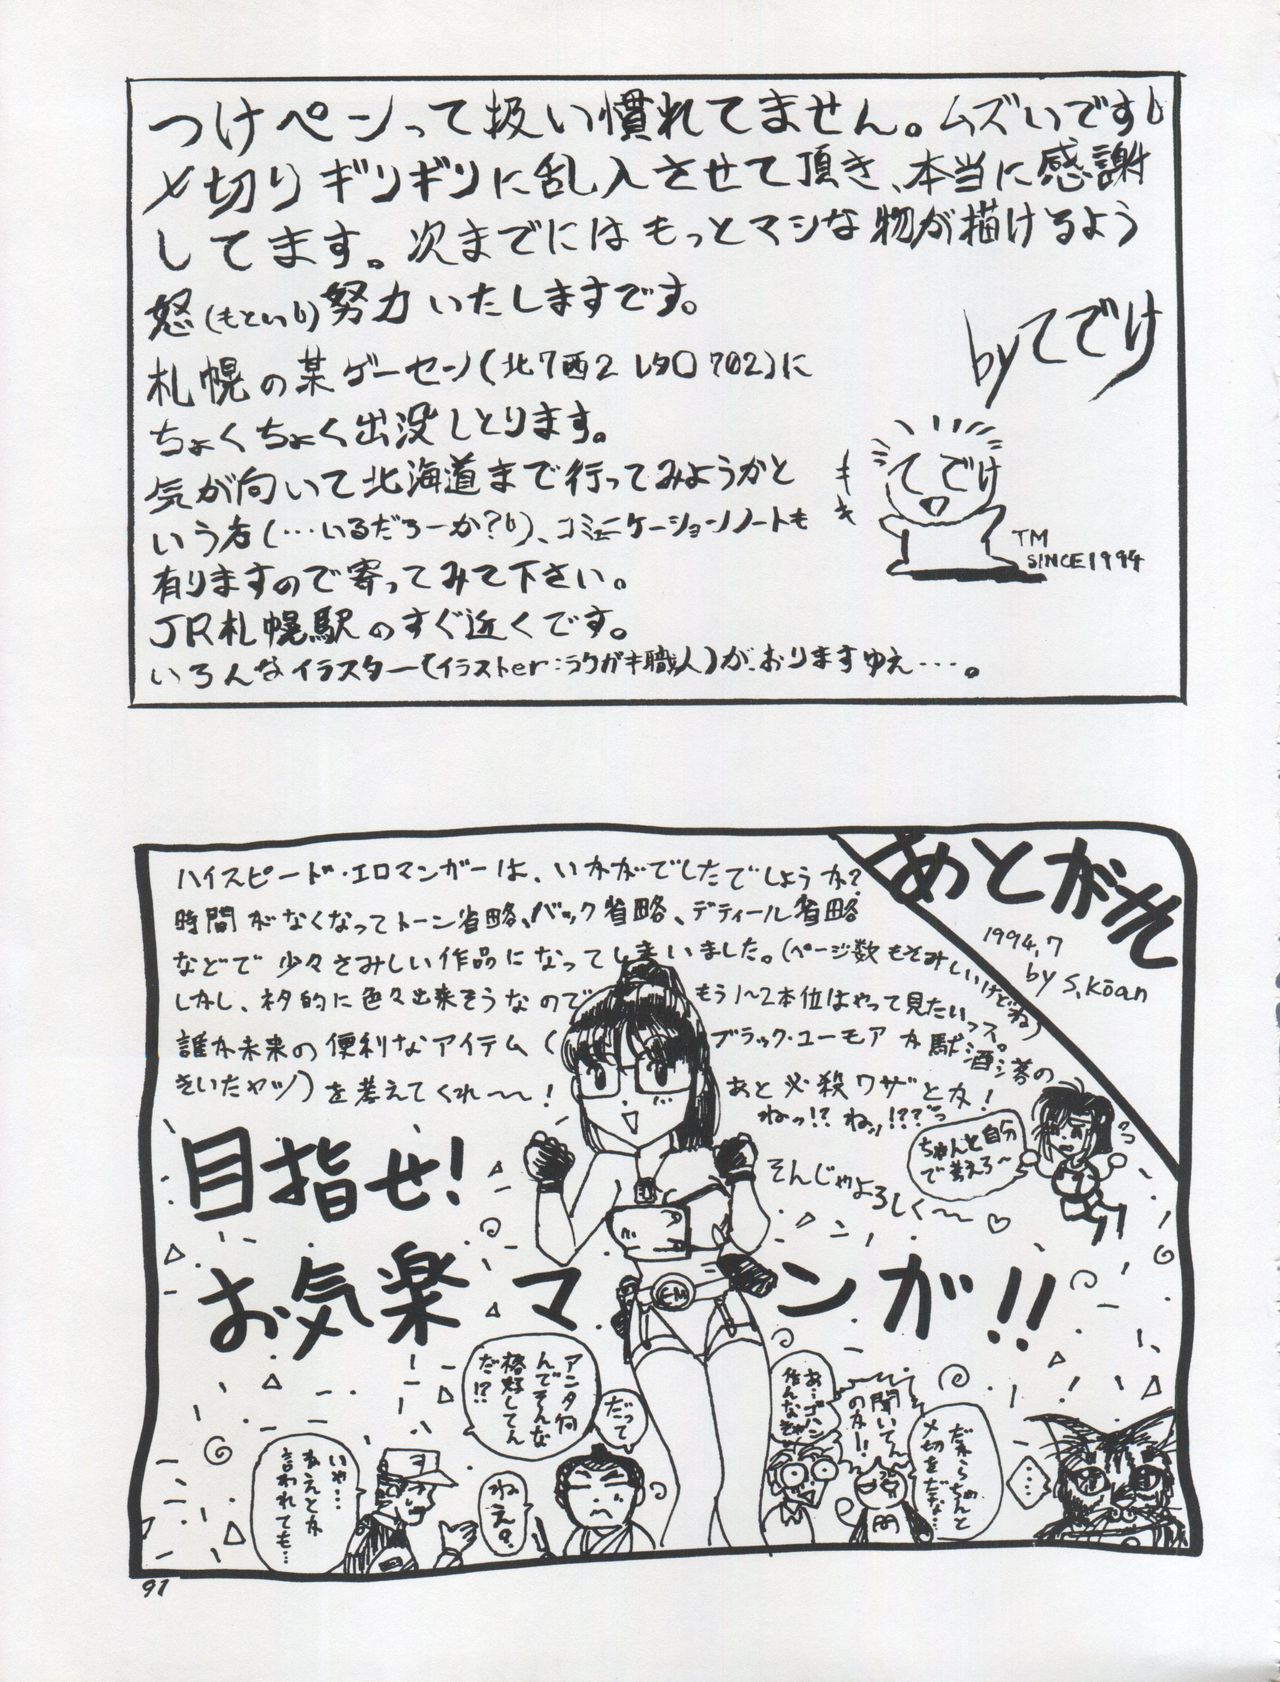 つけペンって扱い慣れてません。ムズいです
〆切りギリギリに乱入させて頂き、本当に感謝
してます。次までにはもっとマシな物が描けるよう
怒(もとい)努力いたしますです。
by てでけ
札幌の某ゲーセン(北7西2 レタロ702)に
ちょくちょく出没しとります。
気が向いて北海道まで行ってみようかと
いう方(…いるだろーか?)、コミュニケーションノートも
有りますので寄ってみて下さい。
JR札幌駅のすぐ近くです。
いろんなイラスター(イラストer:ラクガキ職人)が、おりますゆえ…。
てでけ
TM
SINCE1994
あとがき
1994.7
by S.Kōan
ハイスピード・エロマンガーは、いかがでしたでしょうか?
時間がなくなってトーン省略、バック省略、ディティール省略
などで少々さみしい作品になってしまいました。(ページ数もさみしいけどね)
しかし、ネタ的に色々出来そうなので もう1〜2本位はやって見たいっス。
誰か未来の便利なアイテム( ブラック・ユーモアか駄洒落の
きいたヤツ)を考えてくれ〜〜! あと必殺ワザとか!
ねっ!? ねッ!???
ちゃんと自分
で考えろ〜
そんじゃよろしく〜〜♡
目指せ!
お気楽マンが!!
アンタ何
んでそんな
格好してん
だ!?
だって
あ…ゴハン
作んなきゃ
聞いてん
のか!!
だれらちゃんと
〆切をだな…
…
いや…
ねえとか
言われても…
ねえ?
E-M
91